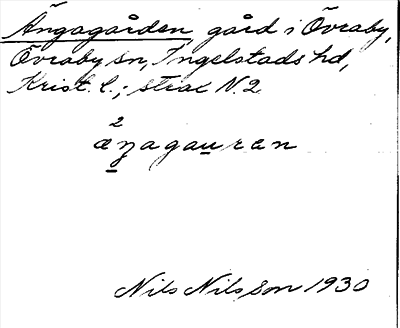 Ängagården, gård i Övraby,
Övraby sn, Ingelstads hd,
Krist. l.; strax N. 2
2
æŋagauran
Nils Nilsson 1930